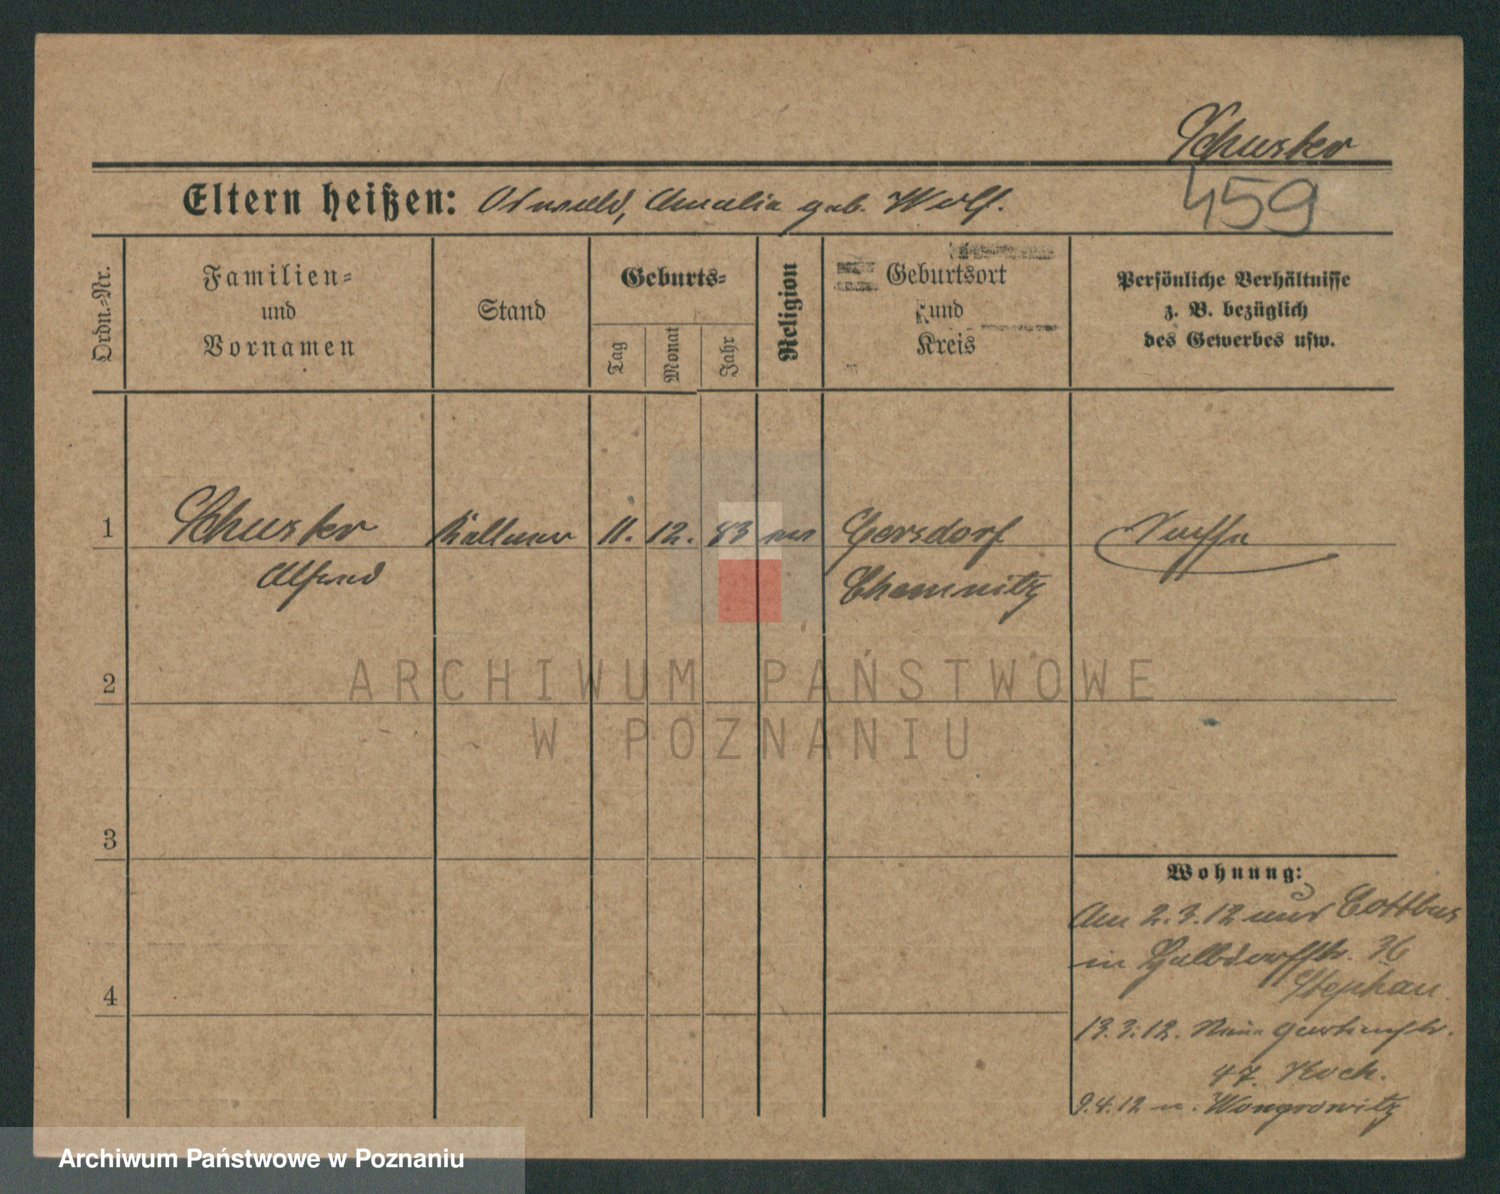 Schuster
459
Eltern heißen: Oswald, Amalia geb. Wolf.
Ordn.-Nr.
Familien-
und
Vornamen
Stand
Geburts-
Tag
Monat
Jahr
Religion
Geburtsort
und
Kreis
Persönliche Verhältnisse
z. B. bezüglich
des Gewerbes usw.
1 Schuster Kellner 11. 12. 83 ev Gersdorf
Alfred Chemnitz
2
3
4
Wohnung:
Am 2.3.12 von Cottbus
in Halbdorfstr. 36
Stephan.
13.3.12. Neue Gartenstr.
47 Koch.
9.4.12 n. Wongrowitz
ARCHIWUM PAŃSTWOWE
W POZNANIU
Archiwum Państwowe w Poznaniu